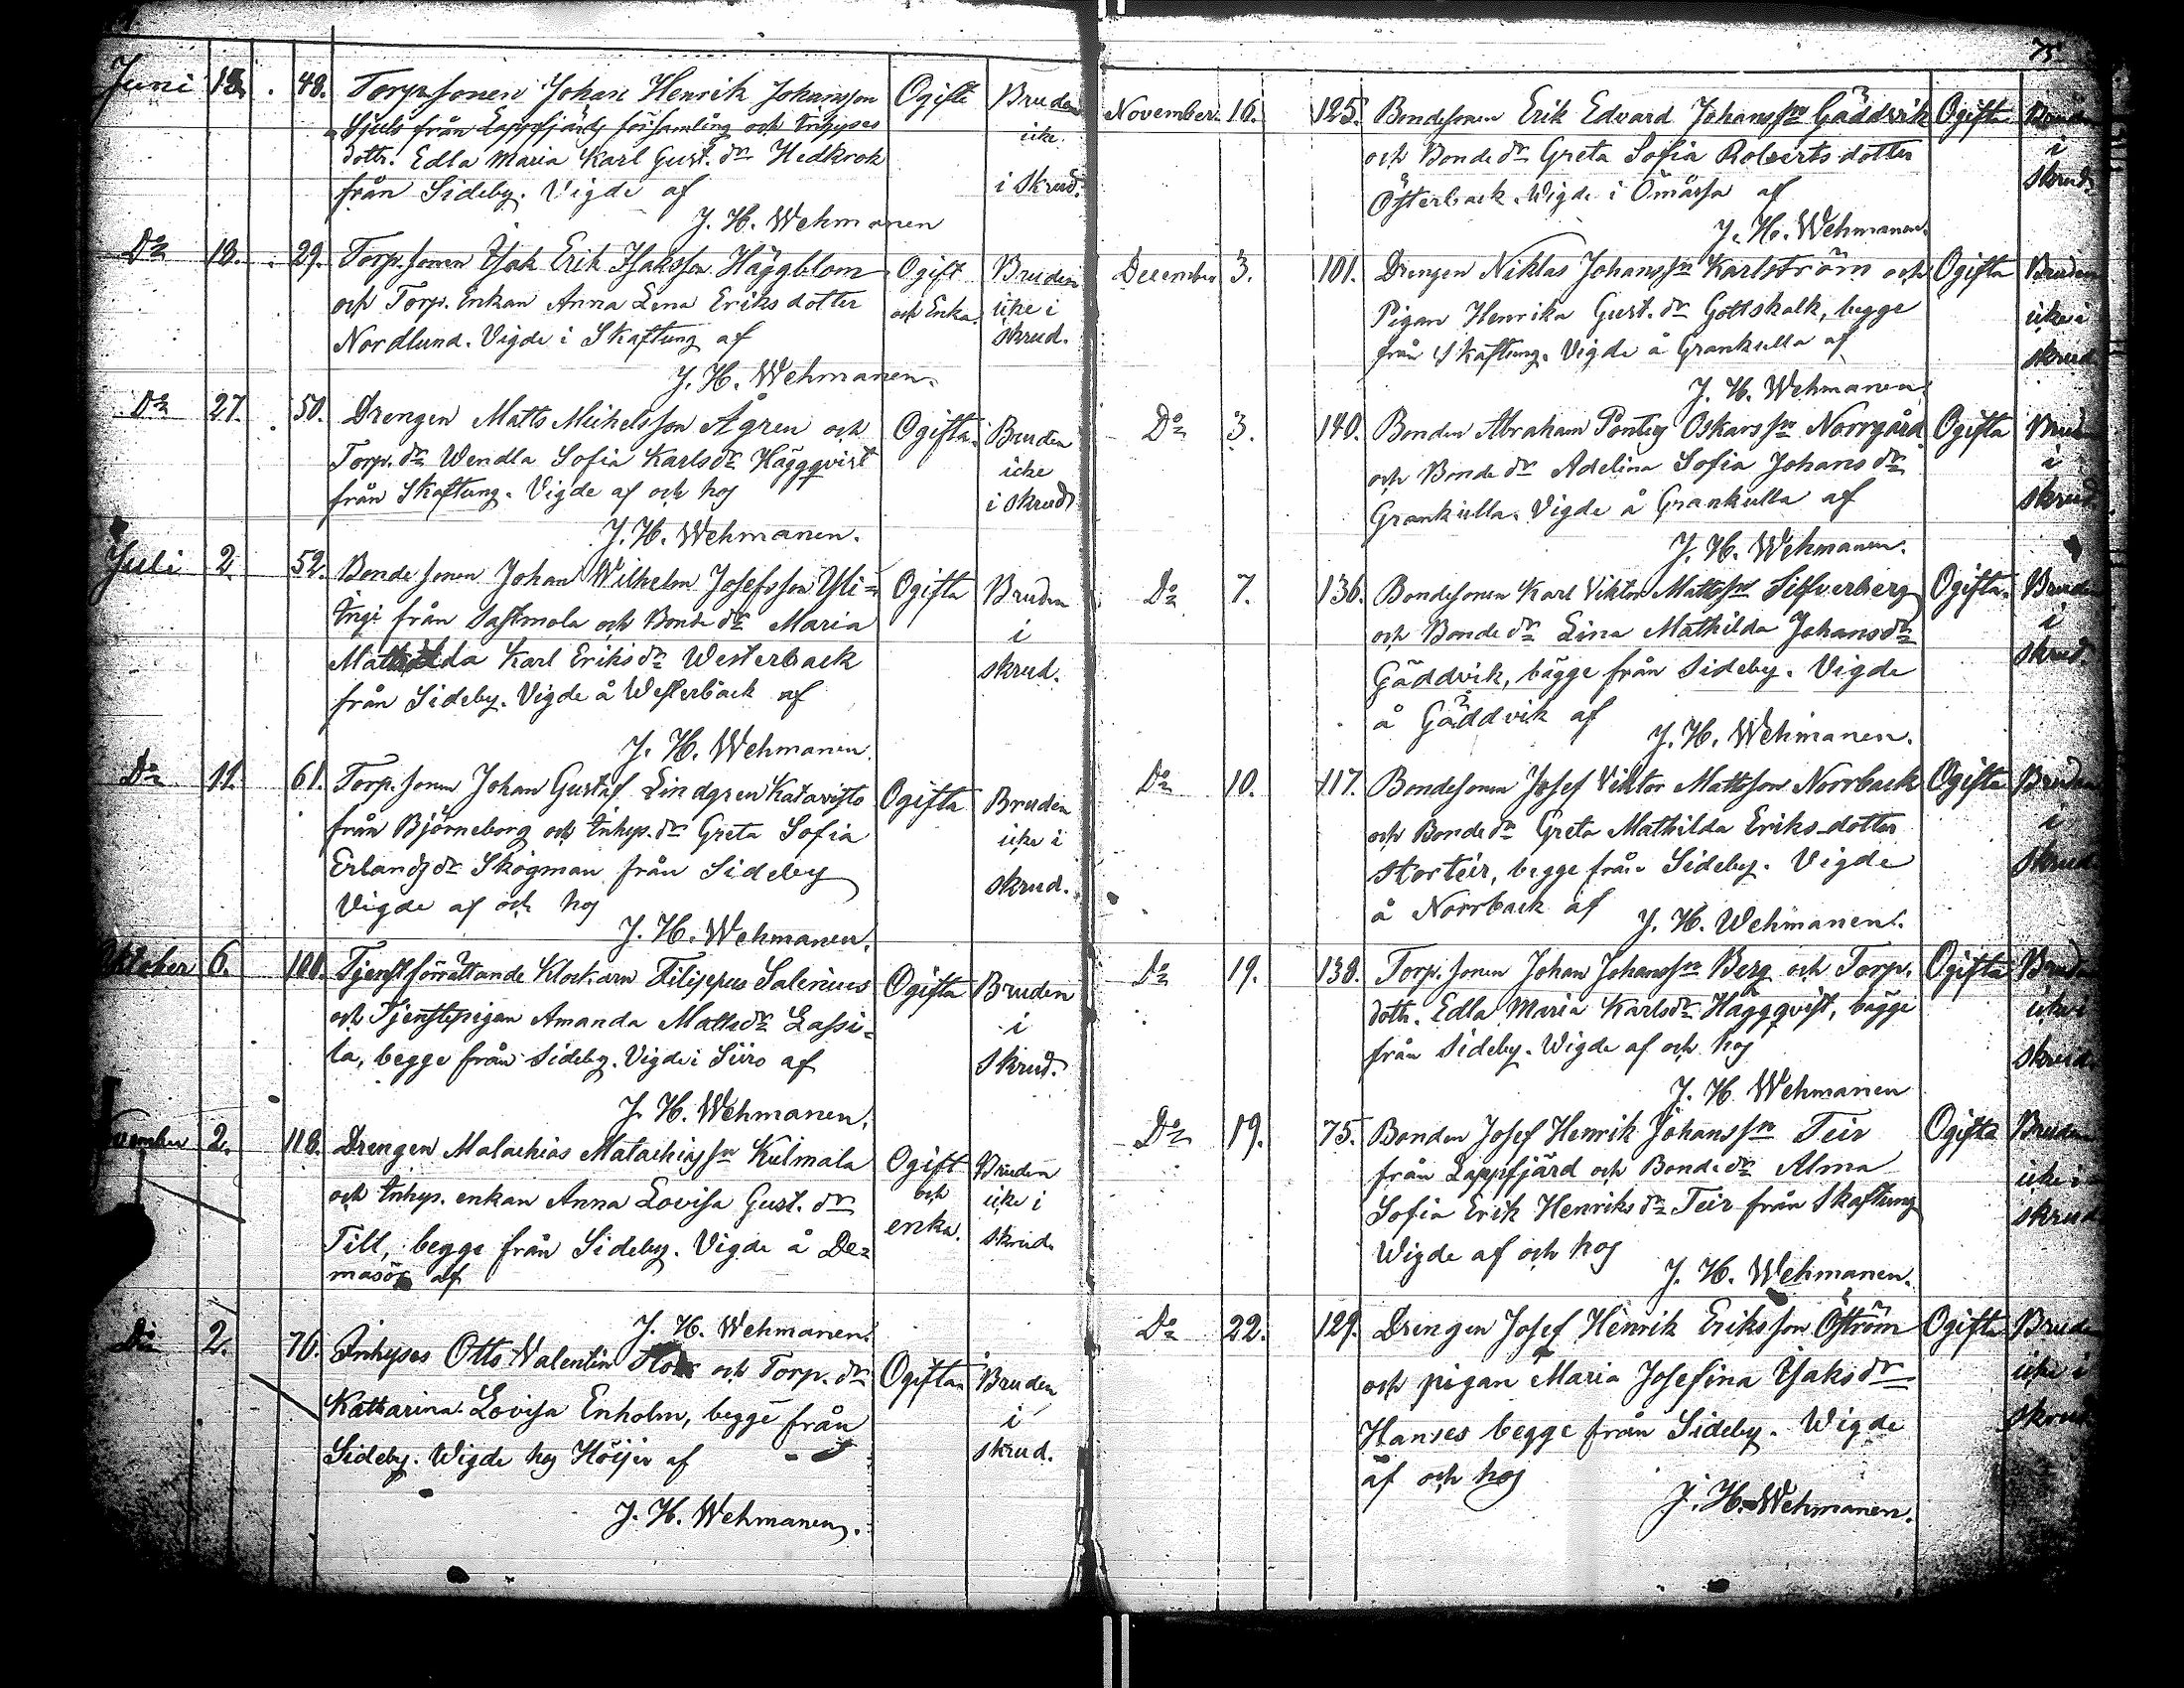 Juni 18. 48. Torpsonen Johan Henrik Johansson Ogifte Bruden
Sjuls från Lappfjärds församling och Inhyses icke
dottr. Edla Maria Karl Gust. dr Hedkrok
från Sideby. Vigde af i skrud.
J. H. Wehmanen
Do 18. 29. Torp. sonen Isak Erik Isaksson Häggblom Ogift Bruden
och Torp. Enkan Anna Lena Eriksdotter och Enka. icke i
Nordlund. Vigde i Skaftung af skrud.
J. H. Wehmanen.
Do 27. 50. Drengen Matts Michelsson Ågren och Ogifta Bruden
Torp. dr Wendla Sofia Karlsdr Häggqvist icke
från Skaftung. Vigde af och hos i skrud
J. H. Wehmanen.
Juli 2. 52. Bondesonen Johan Wilhelm Josefsson Yli- Ogifta Bruden
Ingi från Sastmola och Bondedr Maria i
Mathilda Karl Eriksdr Westerback skrud.
från Sideby. Vigde å Westerback af
J. H. Wehmanen
Do 11. 61. Torp. sonen Johan Gustaf Lindgren Katavisto Ogifta Bruden
från Björneborg och Inhys. dr Greta Sofia icke i
Erlandsdr Skogman från Sideby skrud.
Vigde af och hos
J. H. Wehmanen.
Oktober 6. 100. Tjenstförrättande Klockarn Filippus Salenius Ogifta Bruden
och Tjenstepigan Amanda Mattsdr Lassi- i
la, begge från Sideby. Vigde i Siiro af skrud.
J. H. Wehmanen.
November 2. 118. Drengen Malachias Malachiasson Kulmala Ogift Bruden
och Inhys. enkan Anna Lovisa Gust. dr och icke i
Till, begge från Sideby. Vigde å De- enka. skrud.
masör af
J. H. Wehmanen.
Do 2. 76. Inhyses Otto Valentin och Torp. dr Ogifta Bruden
Katharina Lovisa Enholm, begge från i
Sideby. Wigde hos Höijer af skrud.
J. H. Wehmanen.
75.
November. 16. 125. Bondesonen Erik Edvard Johansson Gäddvik Ogifta Bruden
och Bondedr Greta Sofia Robertsdotter i
Österback. Wigde i Ömossa af skrud.
J. H. Wehmanen.
December 3. 101. Drengen Niklas Johansson Karlström och Ogifta Bruden
Pigan Henrika Gust. dr Gottskalk, begge icke i
från Skaftung. Vigde å Grankulla af skrud
J. H. Wehmanen.
Do 3. 140. Bonden Abraham Pontus Oskarsson Norrgård Ogifta Bruden
och Bondedr Adelina Sofia Johansdr i
Grankulla. Vigde å Grankulla af skrud.
J. H. Wehmanen.
Do 7. 136. Bondesonen Karl Viktor Mattsson Silfverberg Ogifta. Bruden
och Bondedr Lina Mathilda Johansdr i
Gäddvik, bägge från Sideby. Vigde skrud.
å Gäddvik af
J. H. Wehmanen.
Do 10. 117. Bondesonen Josef Viktor Mattsson Norrback Ogifta Bruden
och Bondedr Greta Mathilda Eriksdotter i
Storteir, begge från Sideby. Vigde skrud
å Norrback af
J. H. Wehmanen.
Do 19. 138. Torp. sonen Johan Johansson Berg och Torp. Ogifta Bruden
dottr. Edla Maria Karlsdr Häggqvist, bägge icke i
från Sideby. Wigde af och hos skrud.
J. H. Wehmanen
Do 19. 75. Bonden Josef Henrik Johansson Teir Ogifta Bruden
från Lappfjärd och Bondedr Alma icke i
Sofia Erik Henriksdr Teir från Skaftung skrud
Wigde af och hos
J. H. Wehmanen.
Do 22. 129. Drengen Josef Henrik Eriksson Öström Ogifta Bruden
och pigan Maria Josefina Isaksdr icke i
Hanses begge från Sideby. Wigde skrud
af och hos
J. H. Wehmanen.